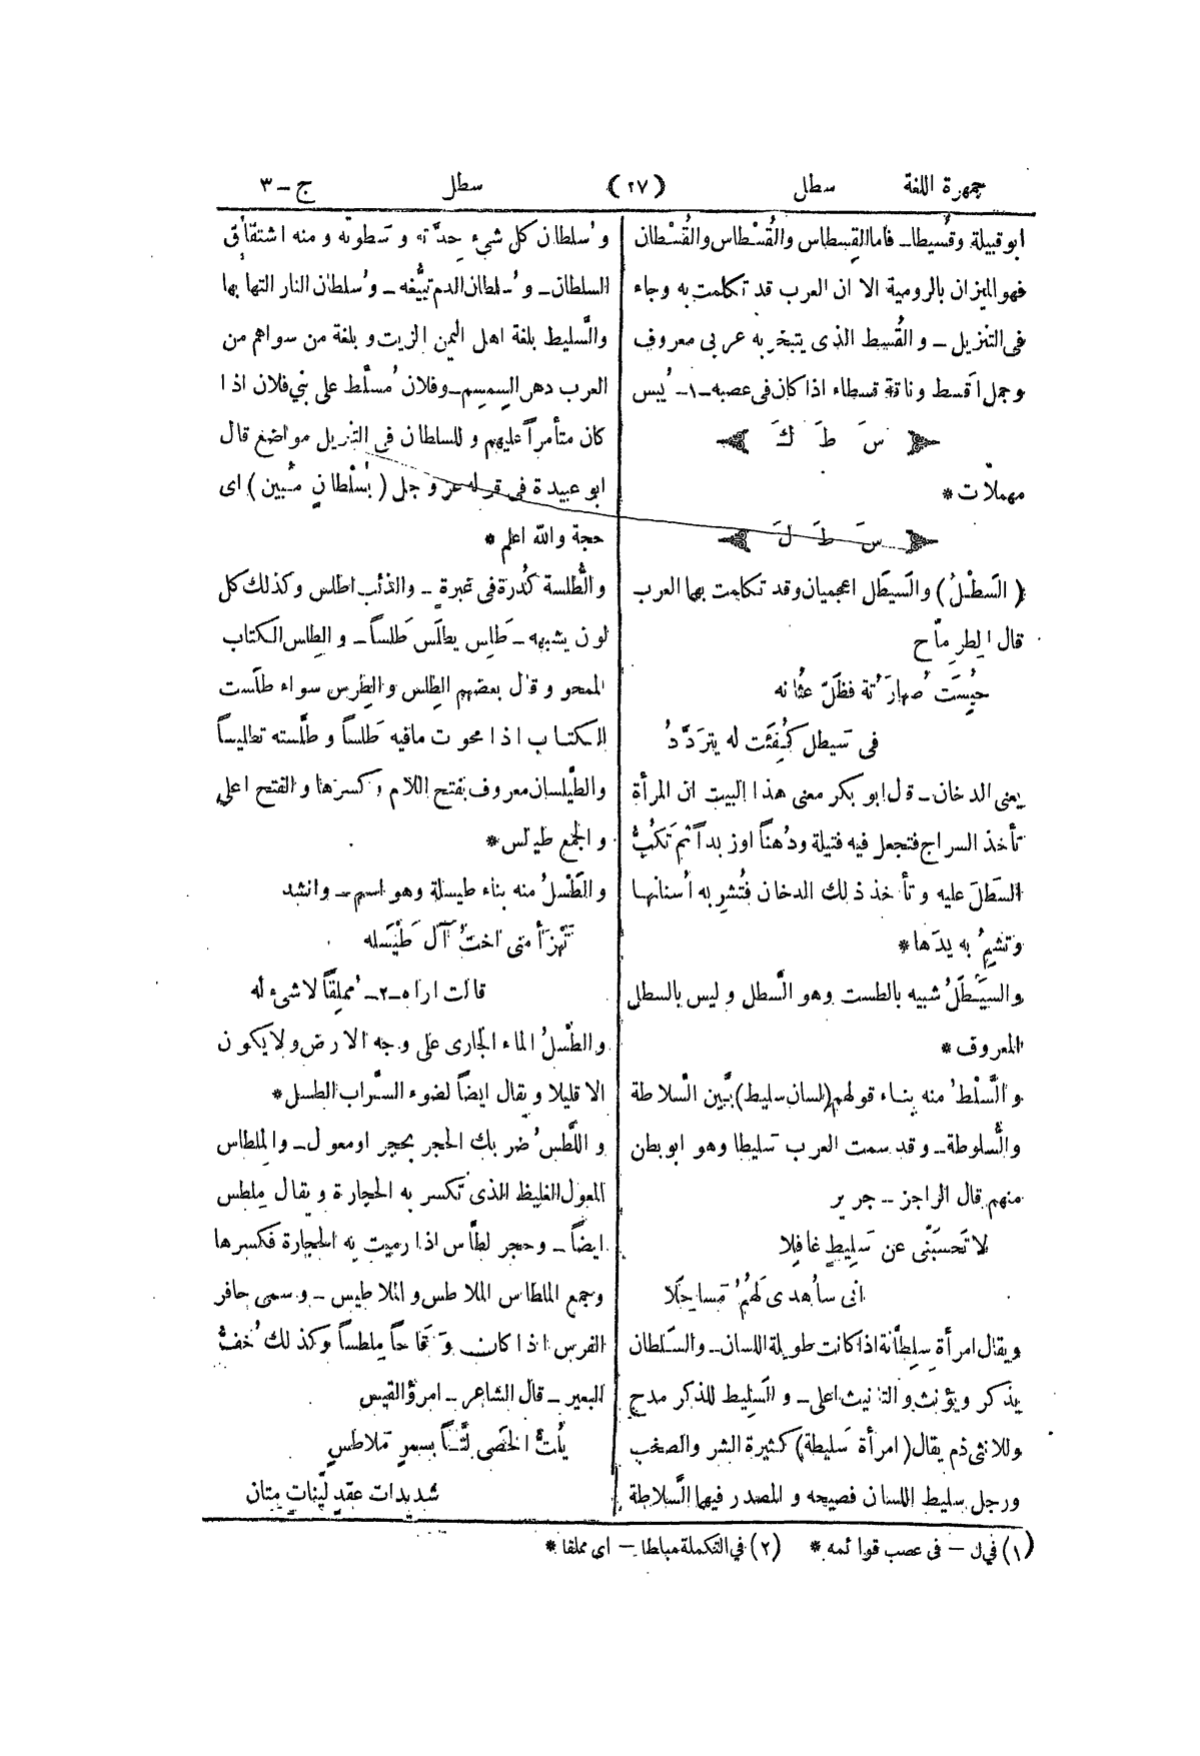 جمهرة اللغة سطل (٢٧) سطل ج – ٣
ابو قبيلة وقُسيطا ــ فاما القِسطاس والقُسْطاس والقُسْطان
فهو الميزان بالرومية الا ان العرب قد تكلمت به وجاء
فى التنزيل ــ و القُسط الذى يتبخر به عربى معروف
وجمل اَقسط وناقة قسطاء اذا كان فى عصبه ــ ١ ــ يُبس
سَ طَ كَ
مهملات *
سَ طَ لَ
( السَطْلُ ) والسَيطَل اعجميان وقد تكلمت بها العرب
قال الطرِمّاح
حُبِسَت صُهارَتُه فظَلّ عُثانه
فى سَيطل كُفِئَت له يتردّدُ
يعنى الدخان ــ قال ابو بكر معنى هذا البيت ان المرأة
تأخذ السراج فتجعل فيه فتيلة ودُهناً او زبداً ثم تَكُبُّ
السَطلَ عليه و تأخذ ذلك الدخان فتُشرِبه أسنانها
وتَشِمُ به يدَها *
والسَيطَلُ شبيه بالطست وهو السَّطل وليس بالسطل
المعروف *
والسَّلْط منه بناء قولهم (لسان سليط) بَيّن السَّلاطة
والسُّلوطة ــ وقد سمت العرب سَليطا وهو ابو بطن
منهم قال الراجز ــ جرير
لا تَحسَبَنّى عن سَلِيطٍ غافِلا
انى سأهدى لَهُمُ مَساحِلَا
ويقال امرأة سِلِطانة اذا كانت طويلة اللسان ــ والسَلطان
يذكر ويؤنث والتانيث اعلى ــ والسَلِيط للذكر مدح
وللانثى ذم يقال (امرأة سَليطة) كثيرة الشر والصخب
ورجل سليط اللسان فصيحه و المصدر فيهما السَّلاطة
وسُلطان كل شىء حِدَّته و سَطوته و منه اشتقاق
السلطان ــ وسُلطان الدم تبيُّغه ــ وسُلطان النار التهابها
والسَّليط بلغة اهل اليمن الزيت و بلغة من سواهم من
العرب دهن السِمسِم ــ وفلان مُسلَّط على بنى فلان اذا
كان متأمراً عليهم و للسلطان فى التنزيل مواضع قال
ابو عبيدة فى قوله عز وجل ( بُسلْطانٍ مُبين ) اى
حجة والله اعلم *
والطُّلسة كُدرة فى غبرة ــ والذئب اطلس وكذلك كل
لون يشبهه ــ طَلِس يطلَس طَلساً ــ و الطِلس الكتاب
الممحو وقال بعضهم الطِلس والطِرس سواء طلَست
الكتاب اذا محوت مافيه طَلساً و طلّسته تطليساً
والطَّيلسان معروف بفتح اللام وكسرها و الفتح اعلى
والجمع طيالس *
والطَّسلُ منه بناء طيسلة وهو اسم ــ وانشد
تَهْزَأ منى اختُ آل طَيْسَله
قالت اراه ــ ٢ ــ مُملِقاً لا شىء له
والطَسْلُ الماء الجارى على وجه الارض ولا يكون
الا قليلا ويقال ايضاً لضوء السَّراب الطسل *
واللَّطسُ ضربك الحجر بحجر او معول ــ والملطاس
المعول الغليظ الذى تكسر به الحجارة ويقال مِلطس
ايضاً ــ وحجر لطّاس اذا رميت به الحجارة فكسرها
وجمع الملطاس الملاطس والملاطيس ــ وسمى حافر
الفرس اذا كان وَقاحاً مِلطساً وكذلك خُفُّ
البعير ــ قال الشاعر ــ امرؤ القيس
يَلُتُّ الحَصى لَتّاً بسمرٍ مَلاطسٍ
شديدات عقدٍ لَيّناتٍ مِتان
(١) فى ل – فى عصب قوائمه * (٢) فى التكملة مبلطا – اى مملقا *